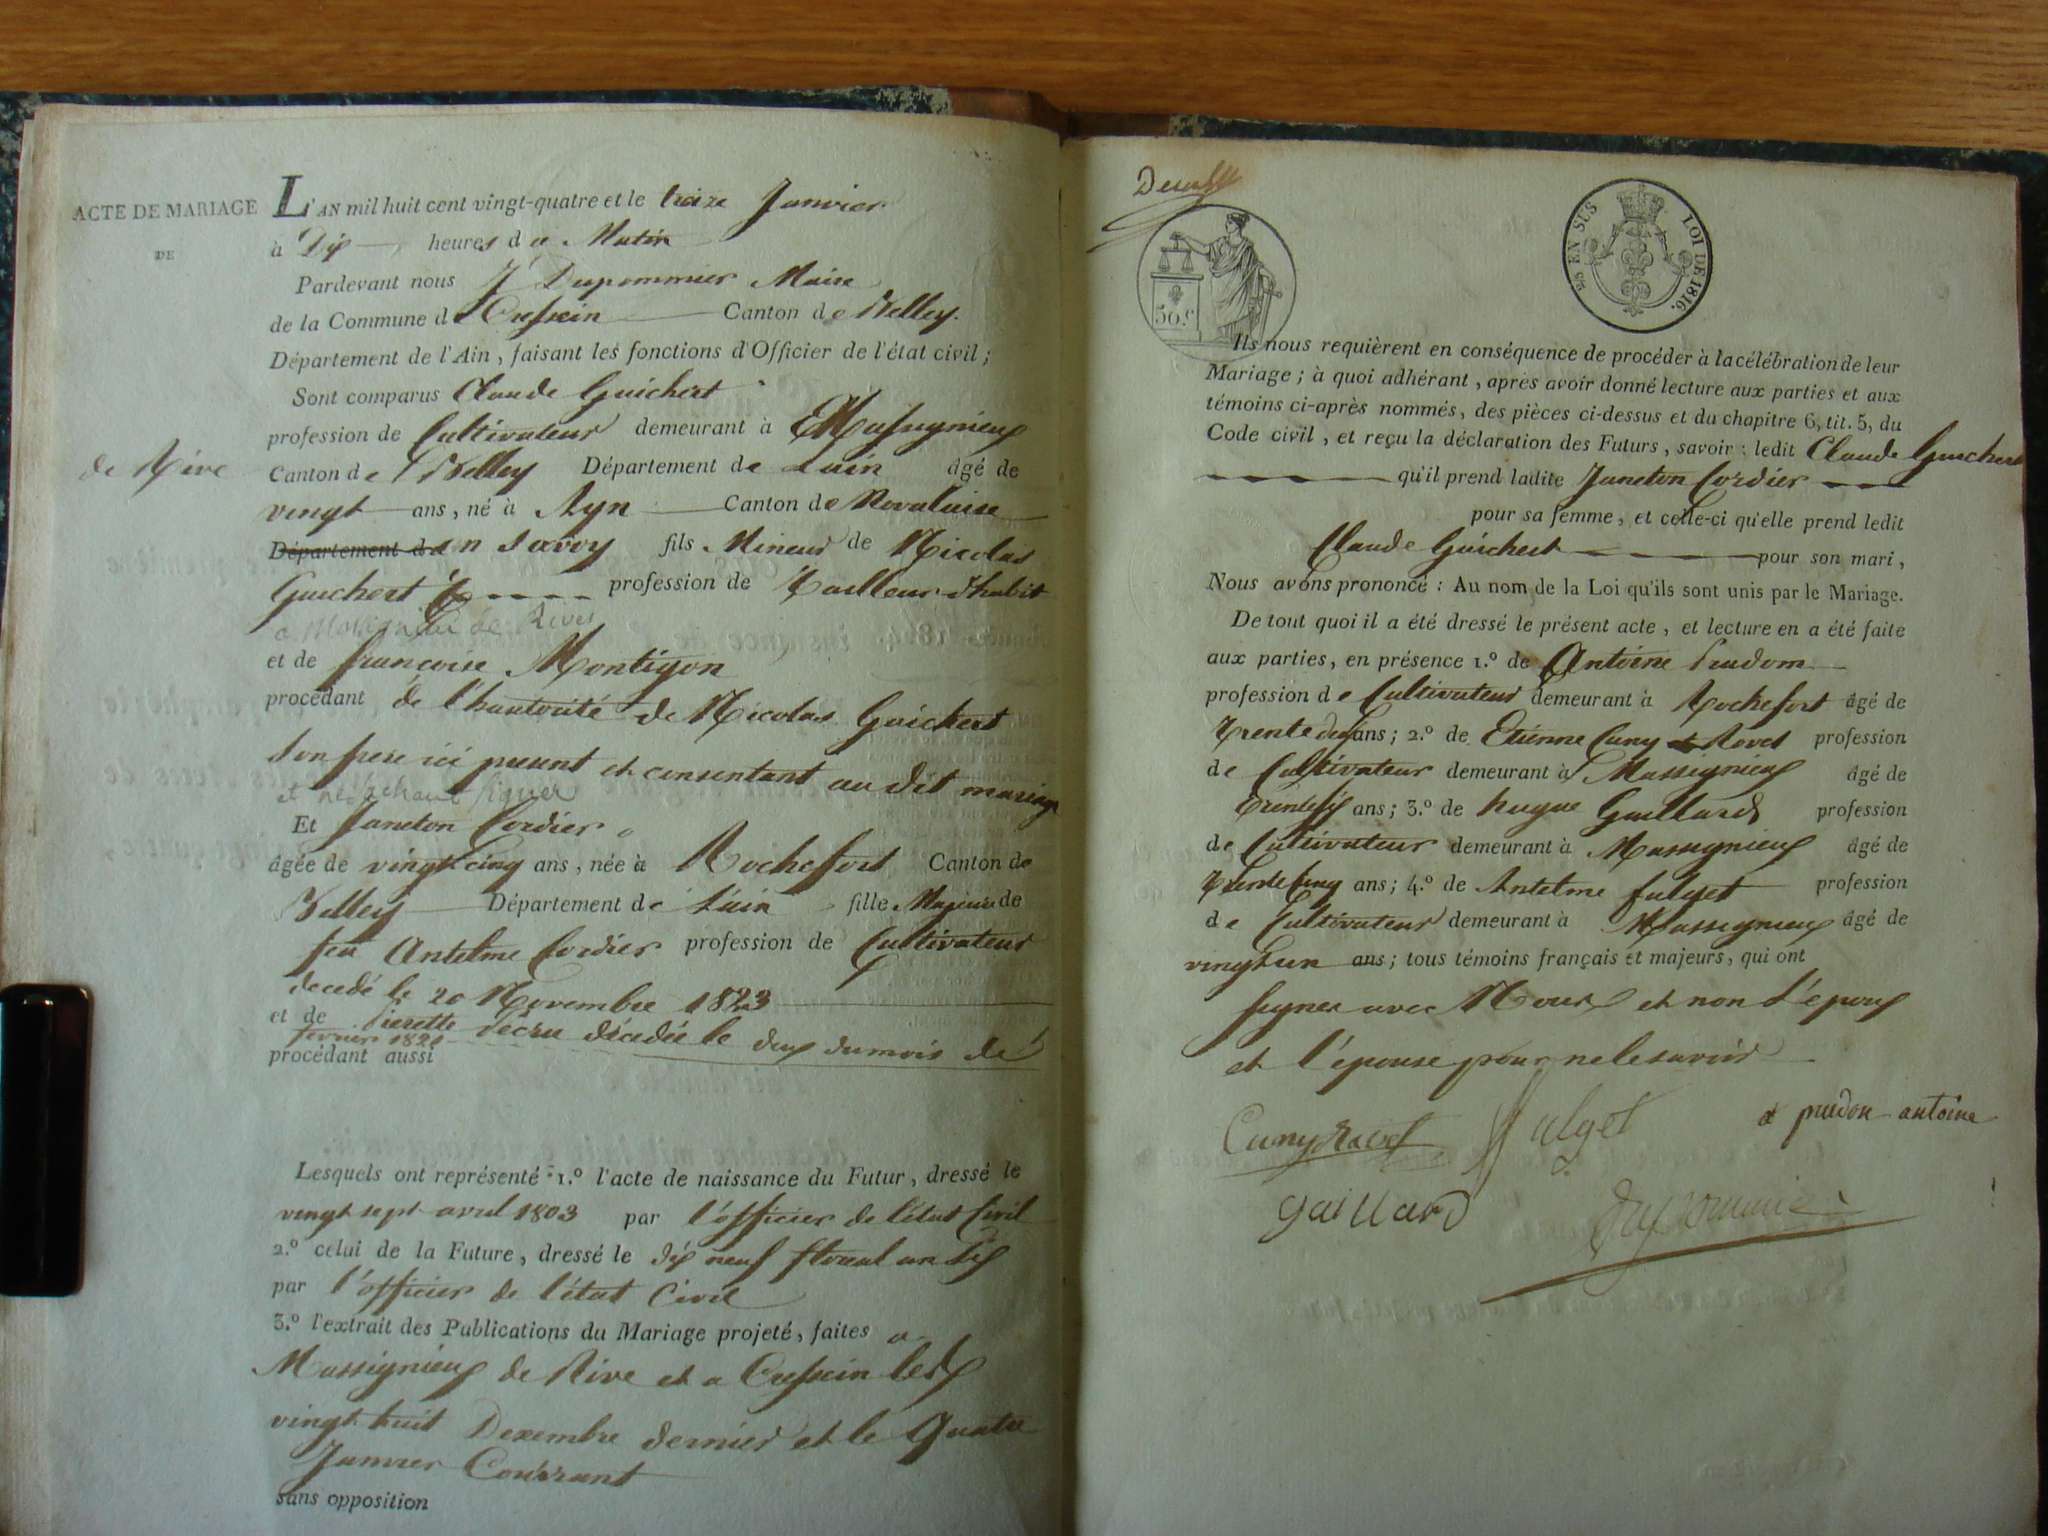 ACTE DE MARIAGE
DE
L'AN mil huit cent vingt-quatre et le treize Janvier
à Dix heures du Matin
Pardevant nous J Dupommier Maire
de la Commune de Cressein Canton de Belley.
Département de l'Ain, faisant les fonctions d'Officier de l'état civil;
Sont comparus Claude Guichert
profession de Cultivateur demeurant à Massignieux
de Rive
Canton de Belley Département de Lain âgé de
vingt ans, né à Ayn Canton de Novalaise
Département de en Savoy fils Mineur de Nicolas
Guichert profession de Tailleur d'habit
a Massignieu de Rives
et de francoise Montigon
procédant de l'hautorité de Nicolas Guichert
son pere ici present et consentant au dit mariage
et ne sachant signer
Et Janeton Cordier
âgée de vingt cinq ans, née à Rochefort Canton de
Belley Département de Lain fille Majeure de
feu Antelme Cordier profession de Cultivateur
decedé le 20 Novembre 1823
et de Pierette décedée le deux du mois de
fevrier 1821
procédant aussi
Lesquels ont représenté 1.º l'acte de naissance du Futur, dressé le
vingt sept avril 1803 par l'officier de l'état Civil
2.º celui de la Future, dressé le dix neuf floreal an six
par l'officier de l'état Civil
3.º l'extrait des Publications du Mariage projeté, faites a
Massignieux de Rive et a Cressein les
vingt huit Dexembre dernier et le Quatre
Janvier Courrant
sans opposition
50.c
EN SUS
LOI DE 1816.
Ils nous requièrent en conséquence de procéder à la célébration de leur
Mariage; à quoi adhérant, après avoir donné lecture aux parties et aux
témoins ci-après nommés, des pièces ci-dessus et du chapitre 6, tit. 5, du
Code civil, et reçu la déclaration des Futurs, savoir: ledit Claude Guichert
qu'il prend ladite Janeton Cordier
pour sa femme, et celle-ci qu'elle prend ledit
Claude Guichert pour son mari,
Nous avons prononcé: Au nom de la Loi qu'ils sont unis par le Mariage.
De tout quoi il a été dressé le présent acte, et lecture en a été faite
aux parties, en présence 1.º de Antoine Prudom
profession de Cultivateur demeurant à Rochefort âgé de
Trente deux ans; 2.º de Etienne Cuny Ravet profession
de Cultivateur demeurant à Massignieux âgé de
trente six ans; 3.º de hugue Guillard profession
de Cultivateur demeurant à Massignieux âgé de
Trente cinq ans; 4.º de Antelme fulget profession
de Cultivateur demeurant à Massignieux âgé de
vingt un ans; tous témoins français et majeurs, qui ont
signer avec Nous et non l'epoux
et l'épouse pour ne le savoir
Cuny Ravet fulget prudon antoine
gaillard Dupommier